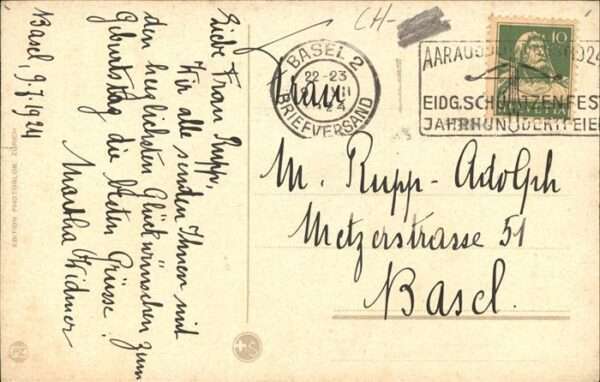 Basel, 9.7.1924
Liebe Frau Rupp,
Wir alle senden Ihnen mit
den herzlichsten Glückwünschen zum
Geburtstag die besten Grüsse!
Martha Widmer
CH-
BASEL 2
22-23
BRIEFVERSAND
10
AARAU
1924
EIDG. SCHÜTZENFEST
JAHRHUNDERTFEIER
Frau
M. Rupp-Adolph
Metzerstrasse 51
Basel.